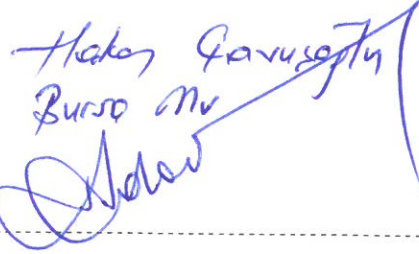 Hakan Çavuşoğlu
Bursa Mv